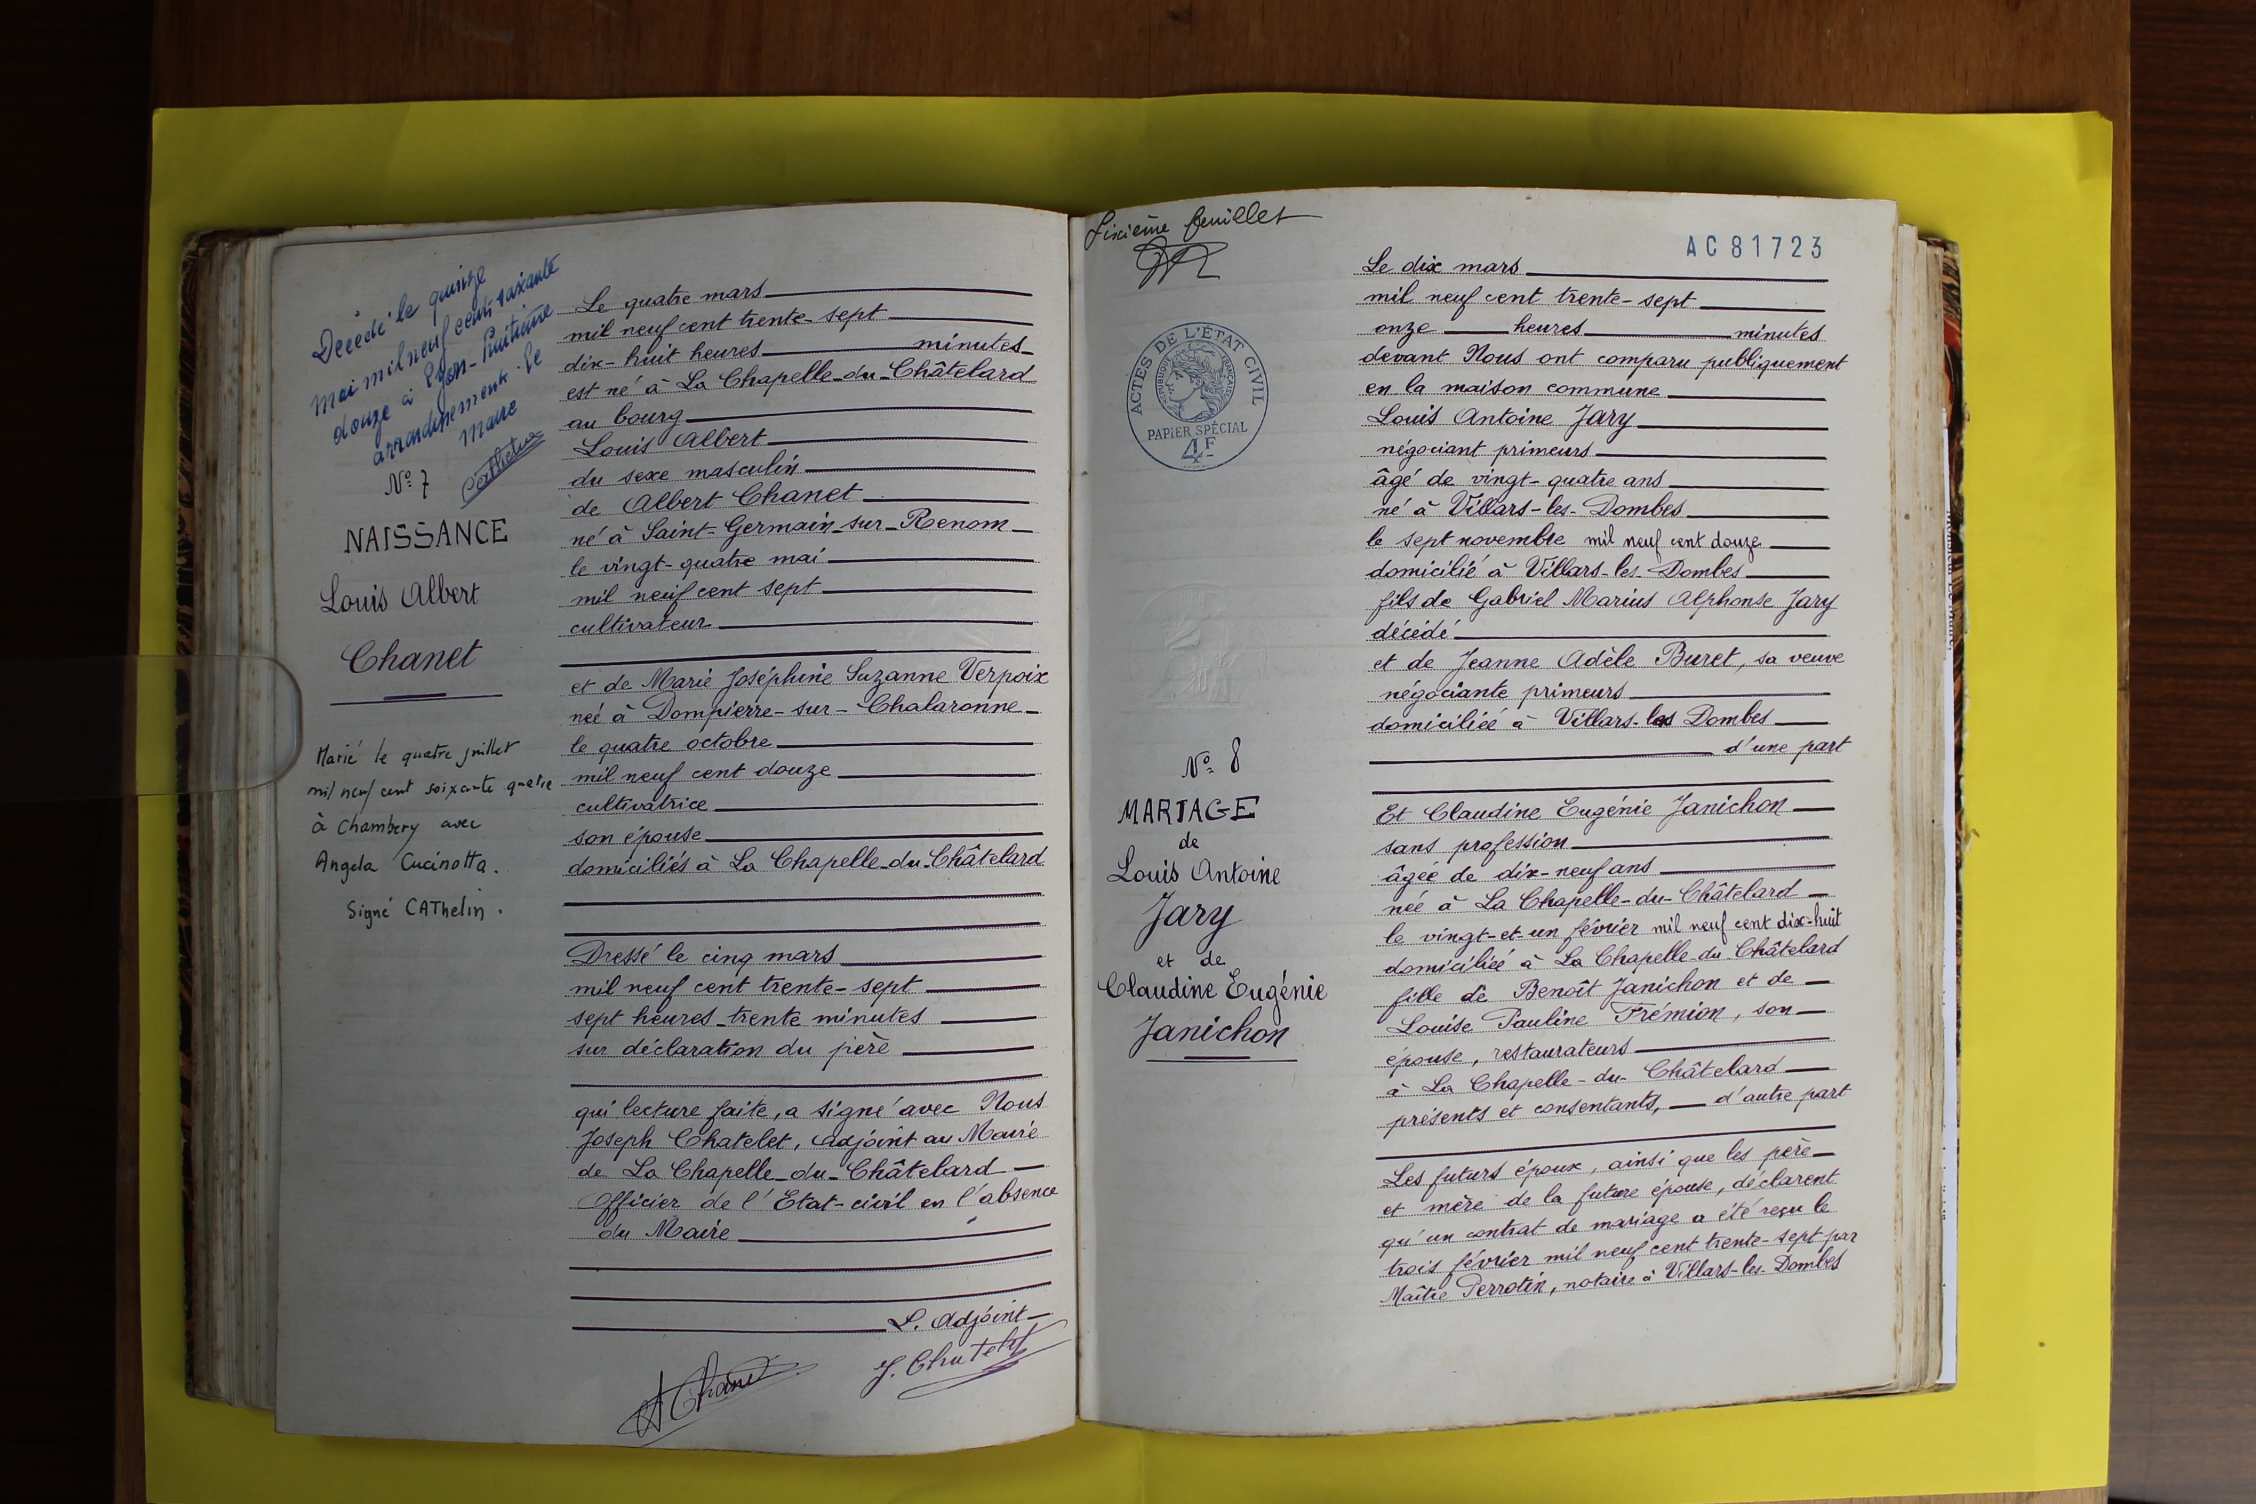 Décédé le quinze
mai mil neuf cent soixante
douze à Lyon-huitième
arrondissement. Le
Maire
N° 7
NAISSANCE
Louis Albert
Chanet
Marié le quatre juillet
mil neuf cent soixante quatre
à Chambery avec
Angela Cucinotta.
Signé CAThelin.
Le quatre mars
mil neuf cent trente-sept
dix-huit heures minutes
est né à La Chapelle-du-Châtelard
au bourg
Louis Albert
du sexe masculin
de Albert Chanet
né à Saint-Germain-sur-Renom
le vingt-quatre mai
mil neuf cent sept
cultivateur
et de Marie Joséphine Suzanne Verpoix
née à Dompierre-sur-Chalaronne
le quatre octobre
mil neuf cent douze
cultivatrice
son épouse
domiciliés à La Chapelle-du-Châtelard
Dressé le cinq mars
mil neuf cent trente-sept
sept heures trente minutes
sur déclaration du père
qui lecture faite, a signé avec Nous
Joseph Chatelet, adjoint au Maire
de La Chapelle-du-Châtelard
Officier de l'Etat-civil en l'absence
du Maire
L'adjoint
A Chanet
J. Chatelet
Sixième feuillet
ACTES DE L'ÉTAT CIVIL
RÉPUBLIQUE FRANÇAISE
PAPIER SPÉCIAL
4F
N° 8
MARIAGE
de
Louis Antoine
Jary
et de
Claudine Eugénie
Janichon
AC81723
Le dix mars
mil neuf cent trente-sept
onze heures minutes
devant Nous ont comparu publiquement
en la maison commune
Louis Antoine Jary
négociant primeurs
âgé de vingt-quatre ans
né à Villars-les-Dombes
le sept novembre mil neuf cent douze
domicilié à Villars-les-Dombes
fils de Gabriel Marius Alphonse Jary
décédé
et de Jeanne Adèle Buret, sa veuve
négociante primeurs
domiciliée à Villars-les Dombes
d'une part
Et Claudine Eugénie Janichon
sans profession
âgée de dix-neuf ans
née à La Chapelle-du-Châtelard
le vingt-et-un février mil neuf cent dix-huit
domiciliée à La Chapelle-du-Châtelard
fille de Benoît Janichon et de
Louise Pauline Frémion, son
épouse, restaurateurs
à La Chapelle-du-Châtelard
présents et consentants, d'autre part
Les futurs époux, ainsi que les père
et mère de la future épouse, déclarent
qu'un contrat de mariage a été reçu le
trois février mil neuf cent trente-sept par
Maître Perrotin, notaire à Villars-les-Dombes